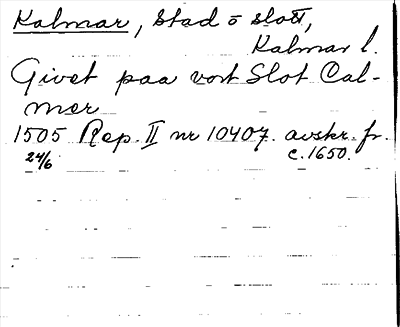 Kalmar, stad o slott,
Kalmar l.
Givet paa vort Slot Cal-
mer
1505 Rep. II nr 10407. avskr. fr.
24/6 c. 1650.